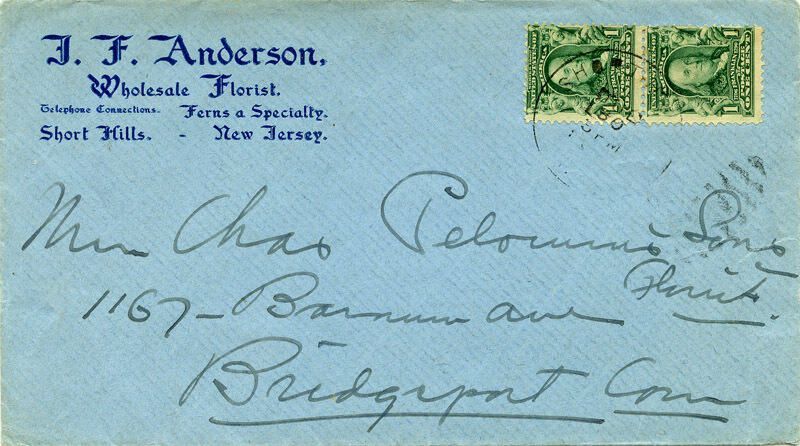 J. F. Anderson,
Wholesale Florist.
Telephone Connections. Ferns a Specialty.
Short Hills. - New Jersey.
1 1
SH
PM
Chas Sons
Florist.
1167- Barnum ave
Bridgeport Conn